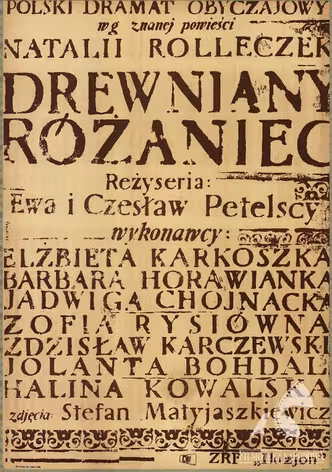 POLSKI DRAMAT OBYCZAJOWY
wg znanej powieści
NATALII ROLLECZEK
DREWNIANY
RÓŻANIEC
Reżyseria:
Ewa i Czesław Petelscy
wykonawcy:
ELŻBIETA KARKOSZKA
BARBARA HORAWIANKA
JADWIGA CHOJNACKA
ZOFIA RYSIÓWNA
ZDZISŁAW KARCZEWSKI
JOLANTA BOHDAL
HALINA KOWALSKA
zdjęcia: Stefan Matyjaszkiewicz
ZRF „Iluzjon"